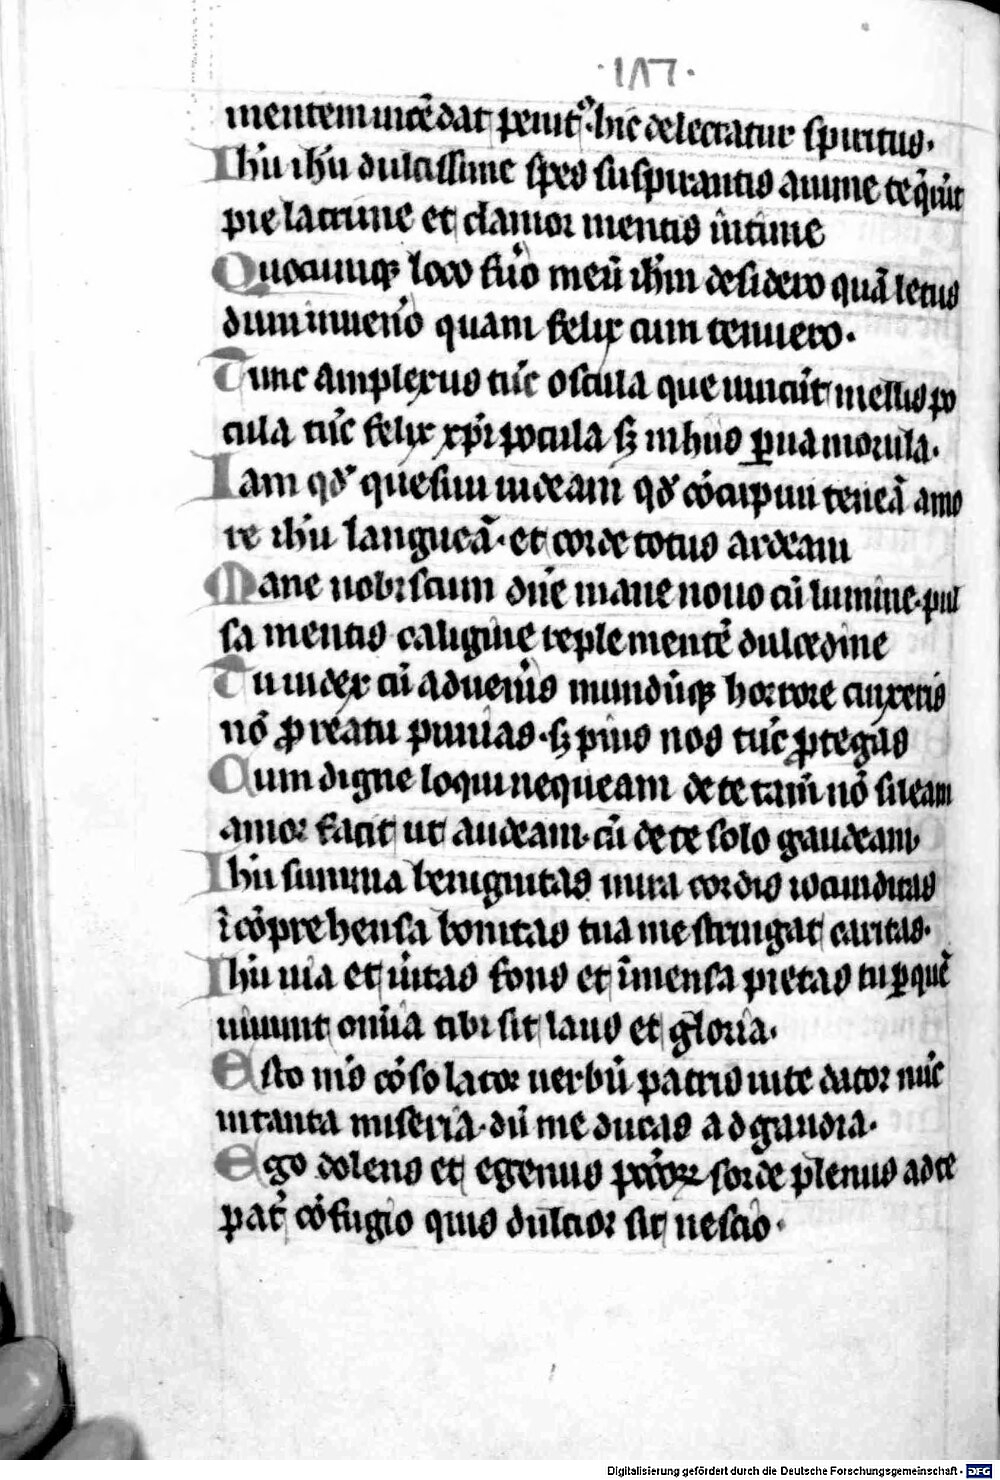 ·147·
mentem incēdat penitꝰ· hic delectatur spiritus·
Ihū ihū dulcissime spes suspirantis anime te q̄rūt
pie lacrime et clamor mentis intime
Quocunqꝫ loco fuō meū ihm̄ desidero quā letus
dum inuen̄o quam felix cum tenuero·
Tunc amplexus tūc oscula que uincūt mellis po
cula tūc felix xp̄i pocula sꝫ in hiis ꝑua morula·
Iam qđ quesiui uideam qđ cōcupiui teneā amo
re ihū langueā· et corde totus ardeam
Mane nobiscum dn̄e mane nouo cū lumine· pul
sa mentis caligine reple mentē dulcedine
Tu iudex cū adueñis mundūqꝫ horrore cinxeris
nō ꝓ reatu punias· sꝫ pius nos tūc ꝓtegas
Cum digne loqui nequeam de te tam̄ nō sileam
amor facit ut audeam· cū de te solo gaudeam·
Ihū summa benignitas mira cordis iocunditas
īcōprehensa bonitas tua me stringat caritas·
Ihū uia et uītas fons et īmensa pietas tu ꝑ quē
uiuunt om̄ia tibi sit laus et gloria·
Esto m̄s cōsolator uerbū patris uite dator nūc
in tanta miseria· dū me ducas ad gaudia·
Ego dolens et egenus pc̄c̄oꝝ sorde plenus ad te
pat̄ cōfugio quis dulcior sit nescio·
Digitalisierung gefördert durch die Deutsche Forschungsgemeinschaft - DFG